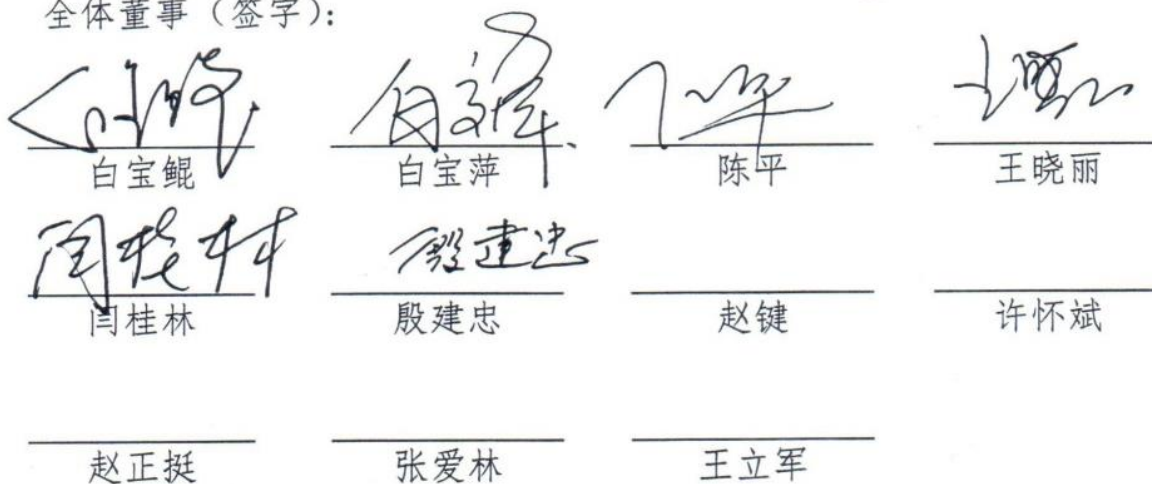 全体董事（签字）：
白宝鲲 白宝萍 陈平 王晓丽
闫桂林 殷建忠
闫桂林 殷建忠 赵键 许怀斌
赵正挺 张爱林 王立军